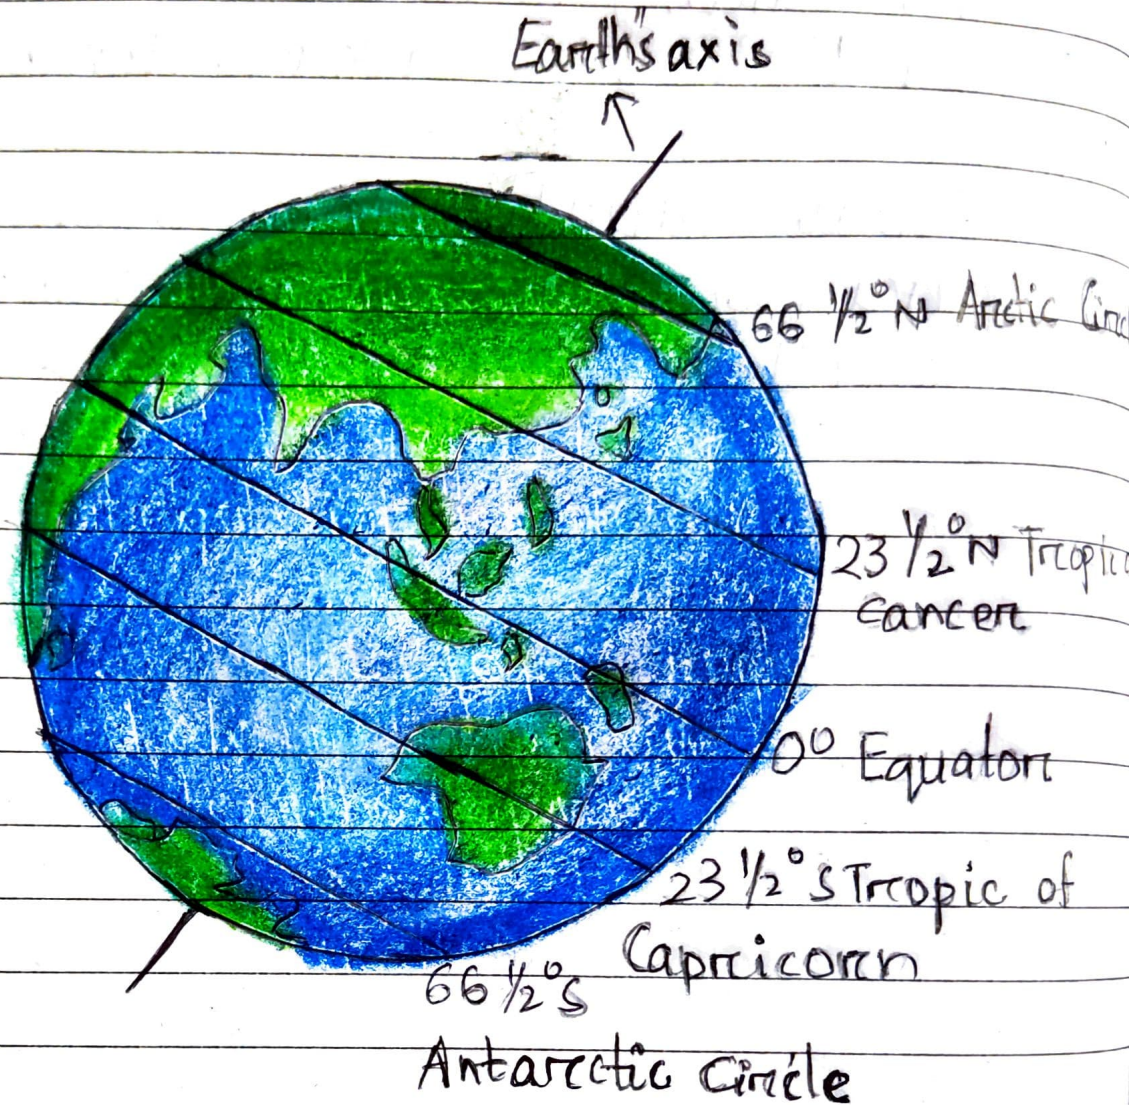 Earth's axis
66 1/2° N Arctic Circ
23 1/2° N Tropic
cancer
0° Equator
23 1/2° S Tropic of
Capricorn
66 1/2° S
Antarctic Circle